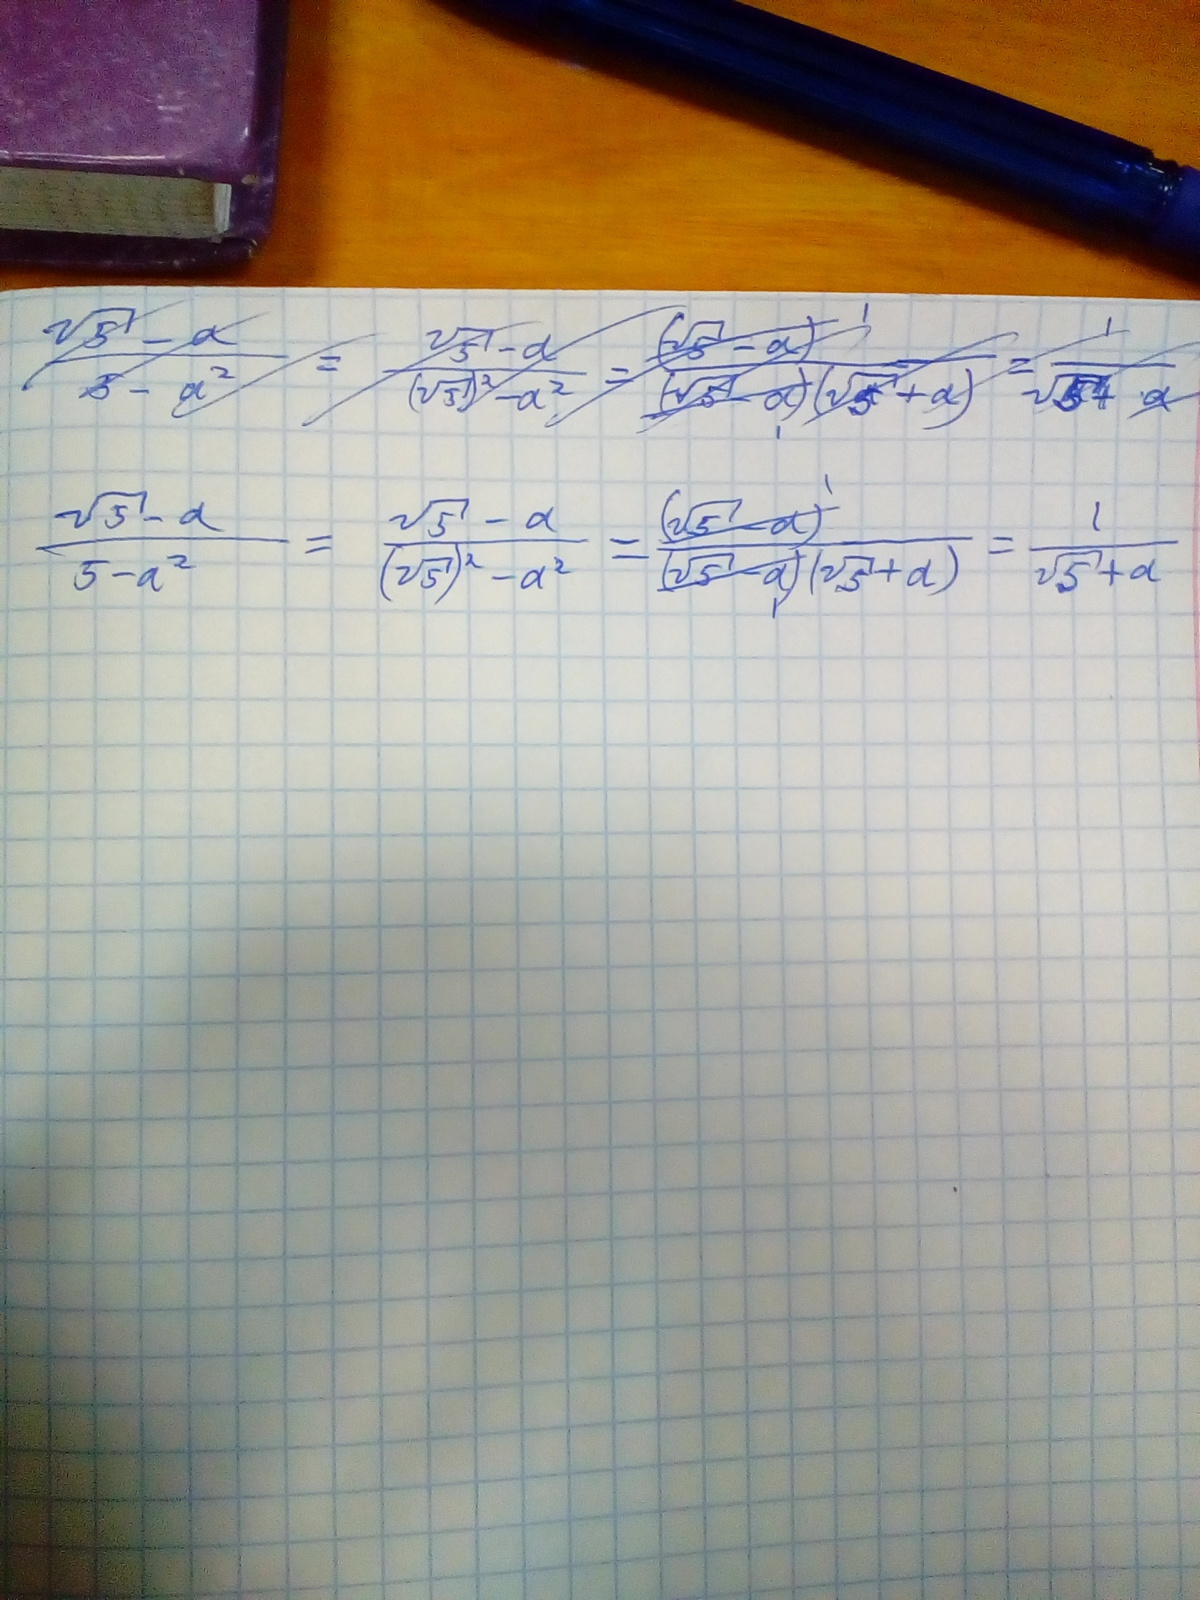 (√5 - a)/(5 - a²) = (√5 - a)/((√5)² - a²) = (√5 - a)/((√5 - a)(√5 + a)) = 1/(√5 + a)
(√5 - a)/(5 - a²) = (√5 - a)/((√5)² - a²) = (√5 - a)¹/((√5 - a)₁(√5 + a)) = 1/(√5 + a)